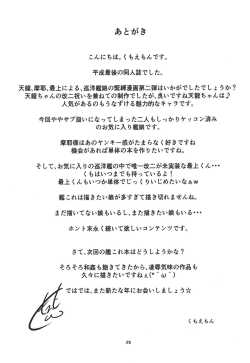 あとがき
こんにちは。くもえもんです。
平成最後の同人誌でした。
天龍、摩耶、最上による、巡洋艦娘の緊縛漫画第二弾はいかがでしたでしょうか？
天龍ちゃんの改二祝いを兼ねての制作でしたが、良いですね天龍ちゃん♪
人気があるのもうなずける魅力的なキャラです。
今回ややサブ扱いになってしまった二人もしっかりケッコン済み
のお気に入り艦娘です。
摩耶様はあのヤンキー感がたまらなく好きですね
機会があれば単体の本を作りたいですね。
そして、お気に入りの巡洋艦の中で唯一改二が未実装な最上くん・・・
くもはいつまでも待っているよ！
最上くんもいつか単体でじっくりいじめたいなぁｗ
艦これは描きたい娘が多すぎて描き切れませんね。
まだ描いてない娘もいるし、また描きたい娘もいる・・・
ホント末永く続いて欲しいコンテンツです。
さて、次回の艦これ本はどうしようかな？
そろそろ和姦も飽きてきたから、凌辱気味の作品も
久々に描きたいですねぇ(*´ω｀)
ではでは、また新たな年にお会いしましょう☆
くもえもん